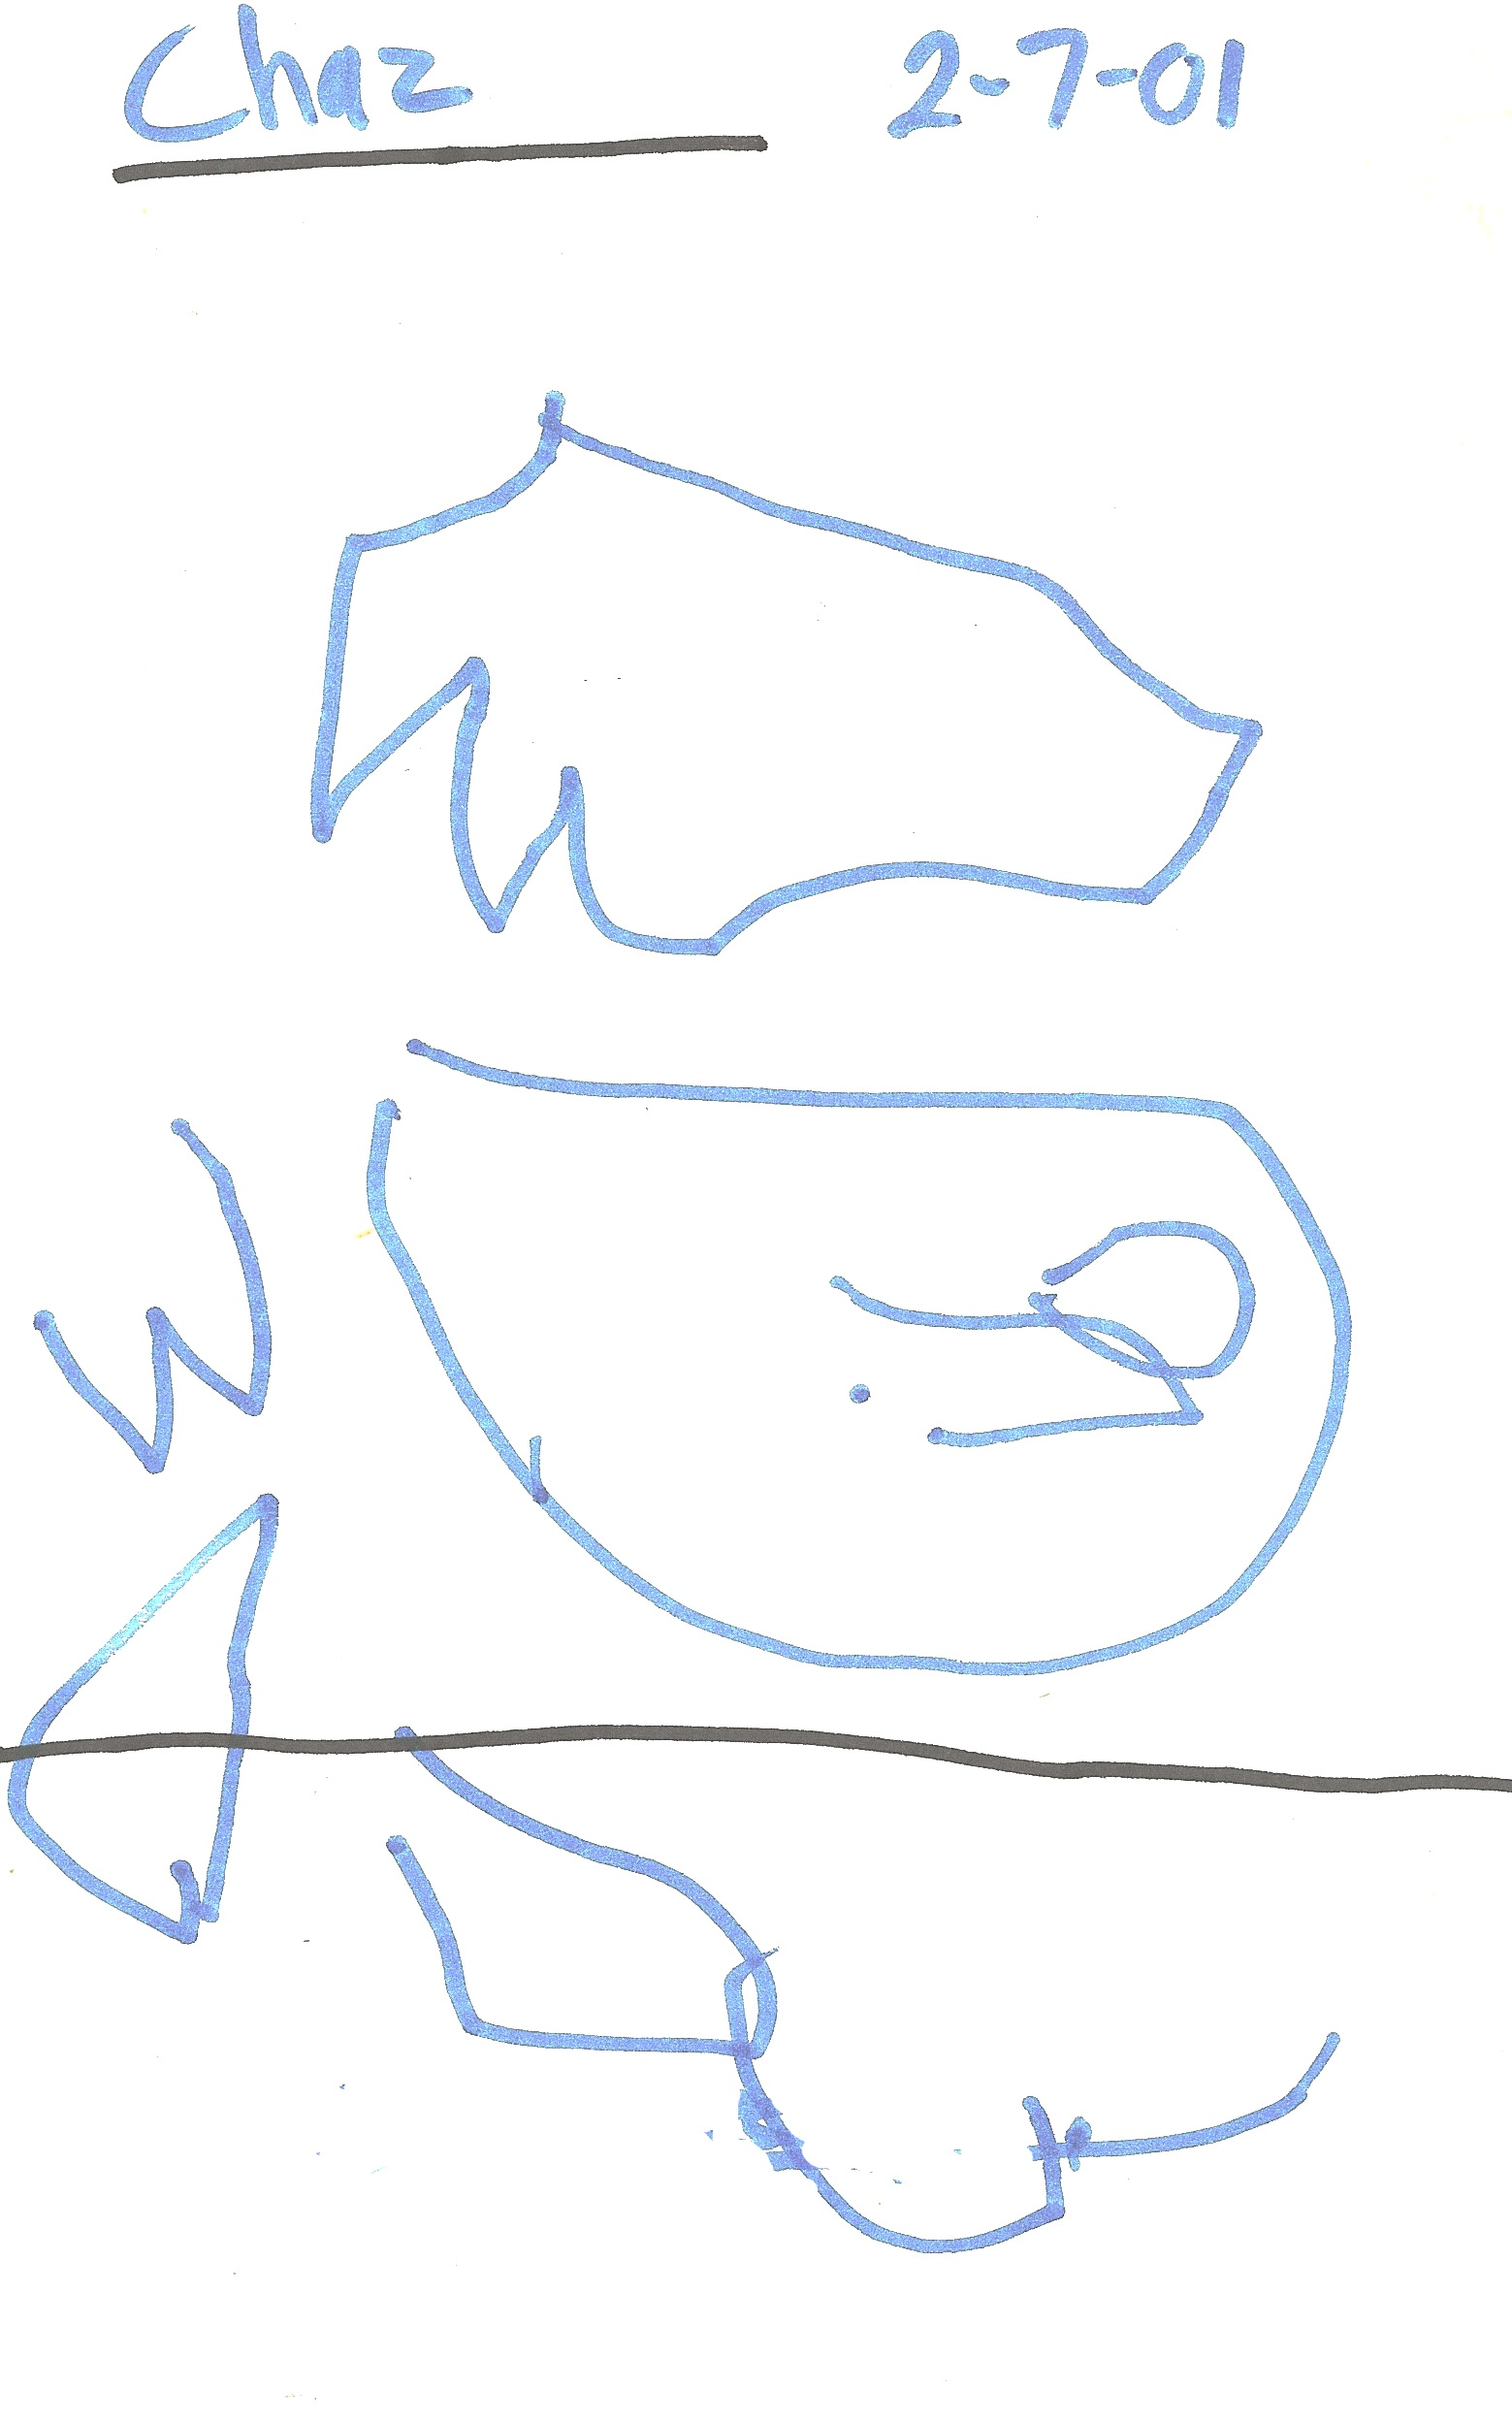 Chaz 2-7-01
W